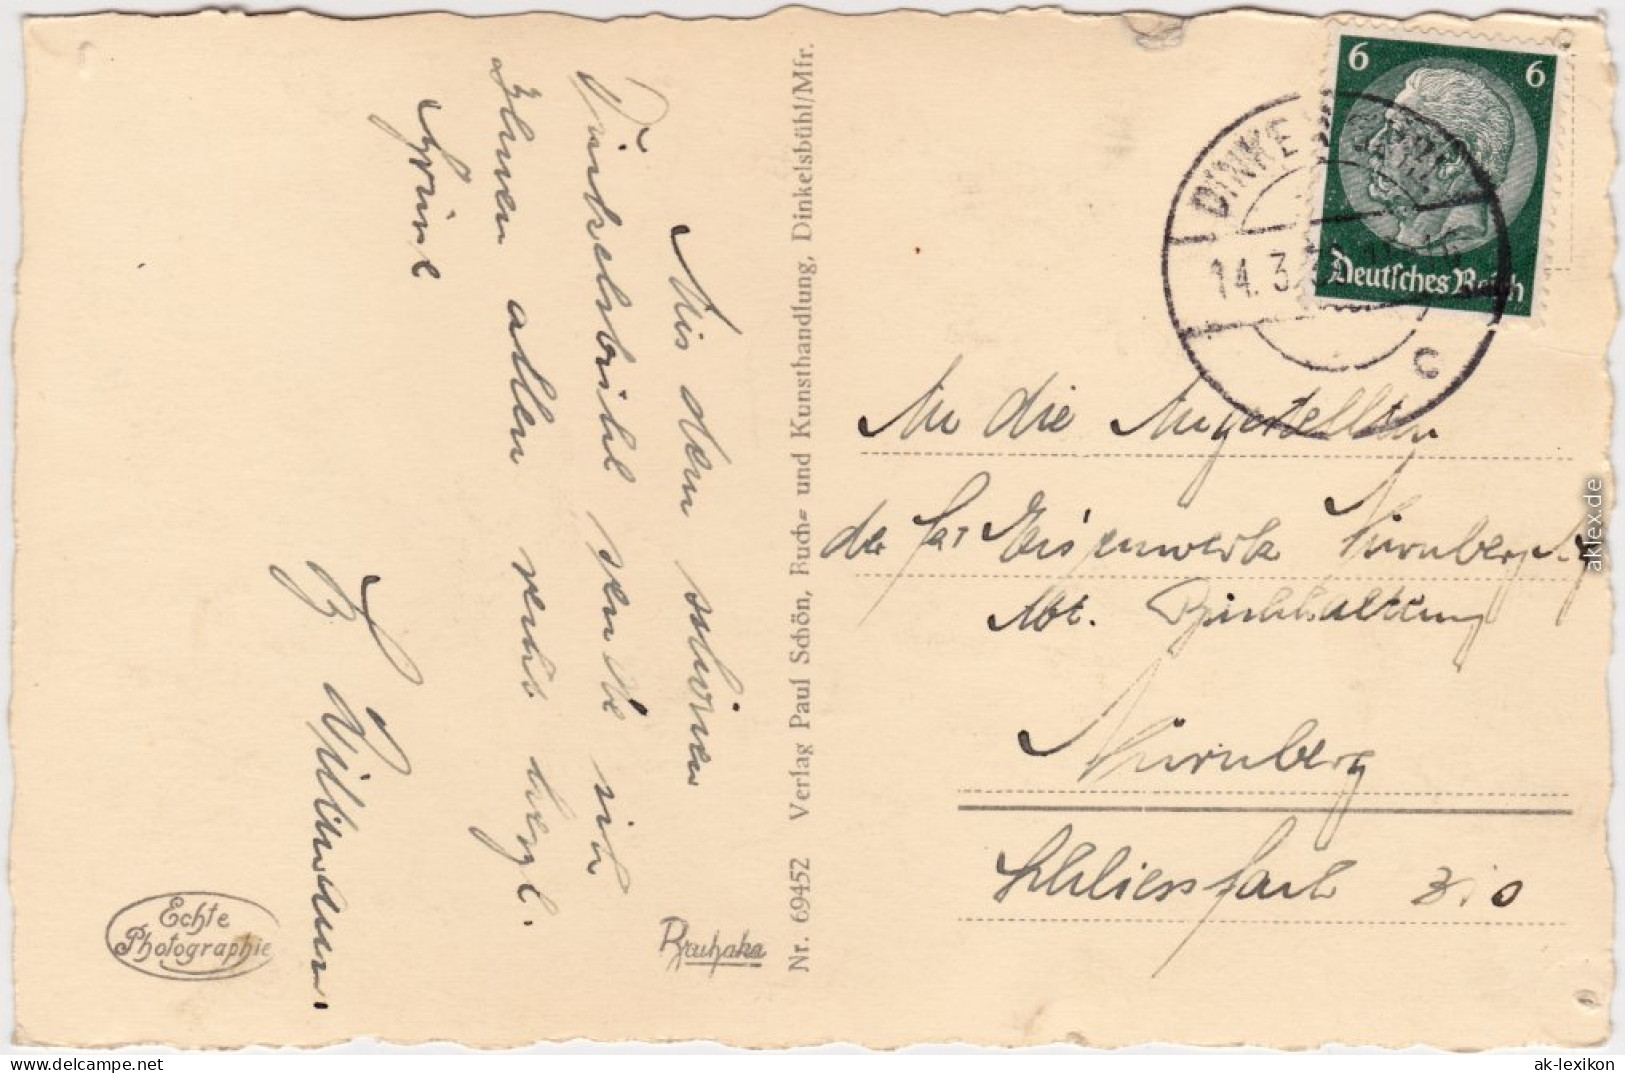 Aus dem schönen
Dinkelsbühl sende ich
Ihnen allen recht herzl.
Grüße
Echte
Photographie
Nr. 69452 Verlag Paul Schön, Buch= und Kunsthandlung, Dinkelsbühl/Mfr.
6 6
Deutsches Reich
14. 3.
c
An die Angestellten
der Fa. Eisenwerk Nürnberg
Abt. Buchhaltung
Nürnberg
Schliessfach
aklex.de
hippostcard.com
ak-lexikon